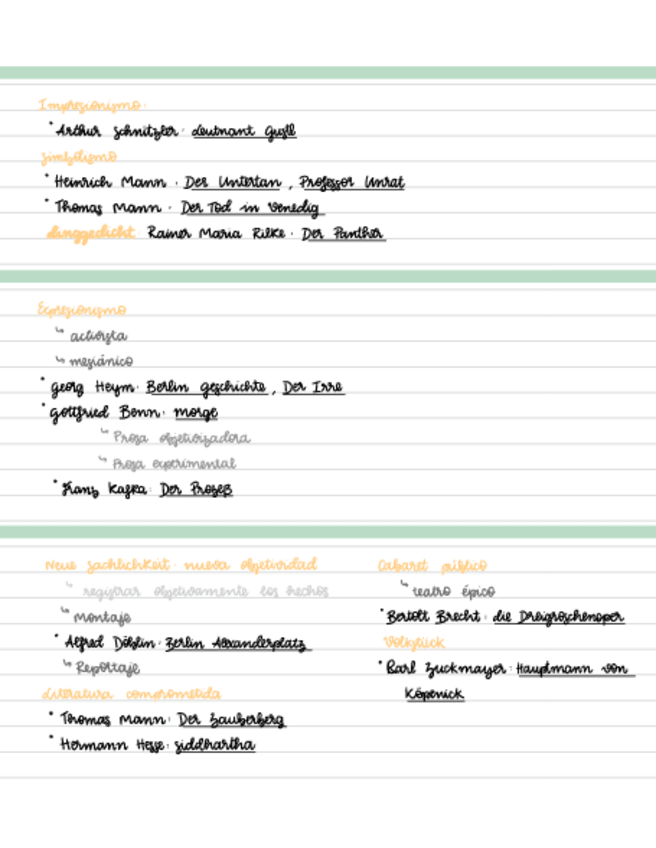 Impresionismo:
• Arthur Schnitzler: Leutnant Gustl
simbolismo
• Heinrich Mann: Der Untertan, Professor Unrat
• Thomas Mann: Der Tod in Venedig
dinggedicht Rainer Maria Rilke: Der Panther
Expresionismo
↳ activista
↳ mesiánico
• Georg Heym: Berlin geschichte, Der Irre
• Gottfried Benn: morge
↳ Prosa objetivizadora
↳ Prosa experimental
• Franz Kafka: Der Prozeß
Neue Sachlichkeit: nueva objetividad
↳ registrar objetivamente los hechos
↳ Montaje
• Alfred Döblin: Berlin Alexanderplatz
↳ Reportaje
Literatura comprometida
• Thomas Mann: Der Zauberberg
• Hermann Hesse: Siddhartha
Cabaret público
↳ teatro épico
• Bertolt Brecht: die Dreigroschenoper
Volkstück
• Karl Zuckmayer: Hauptmann von
Köpenick